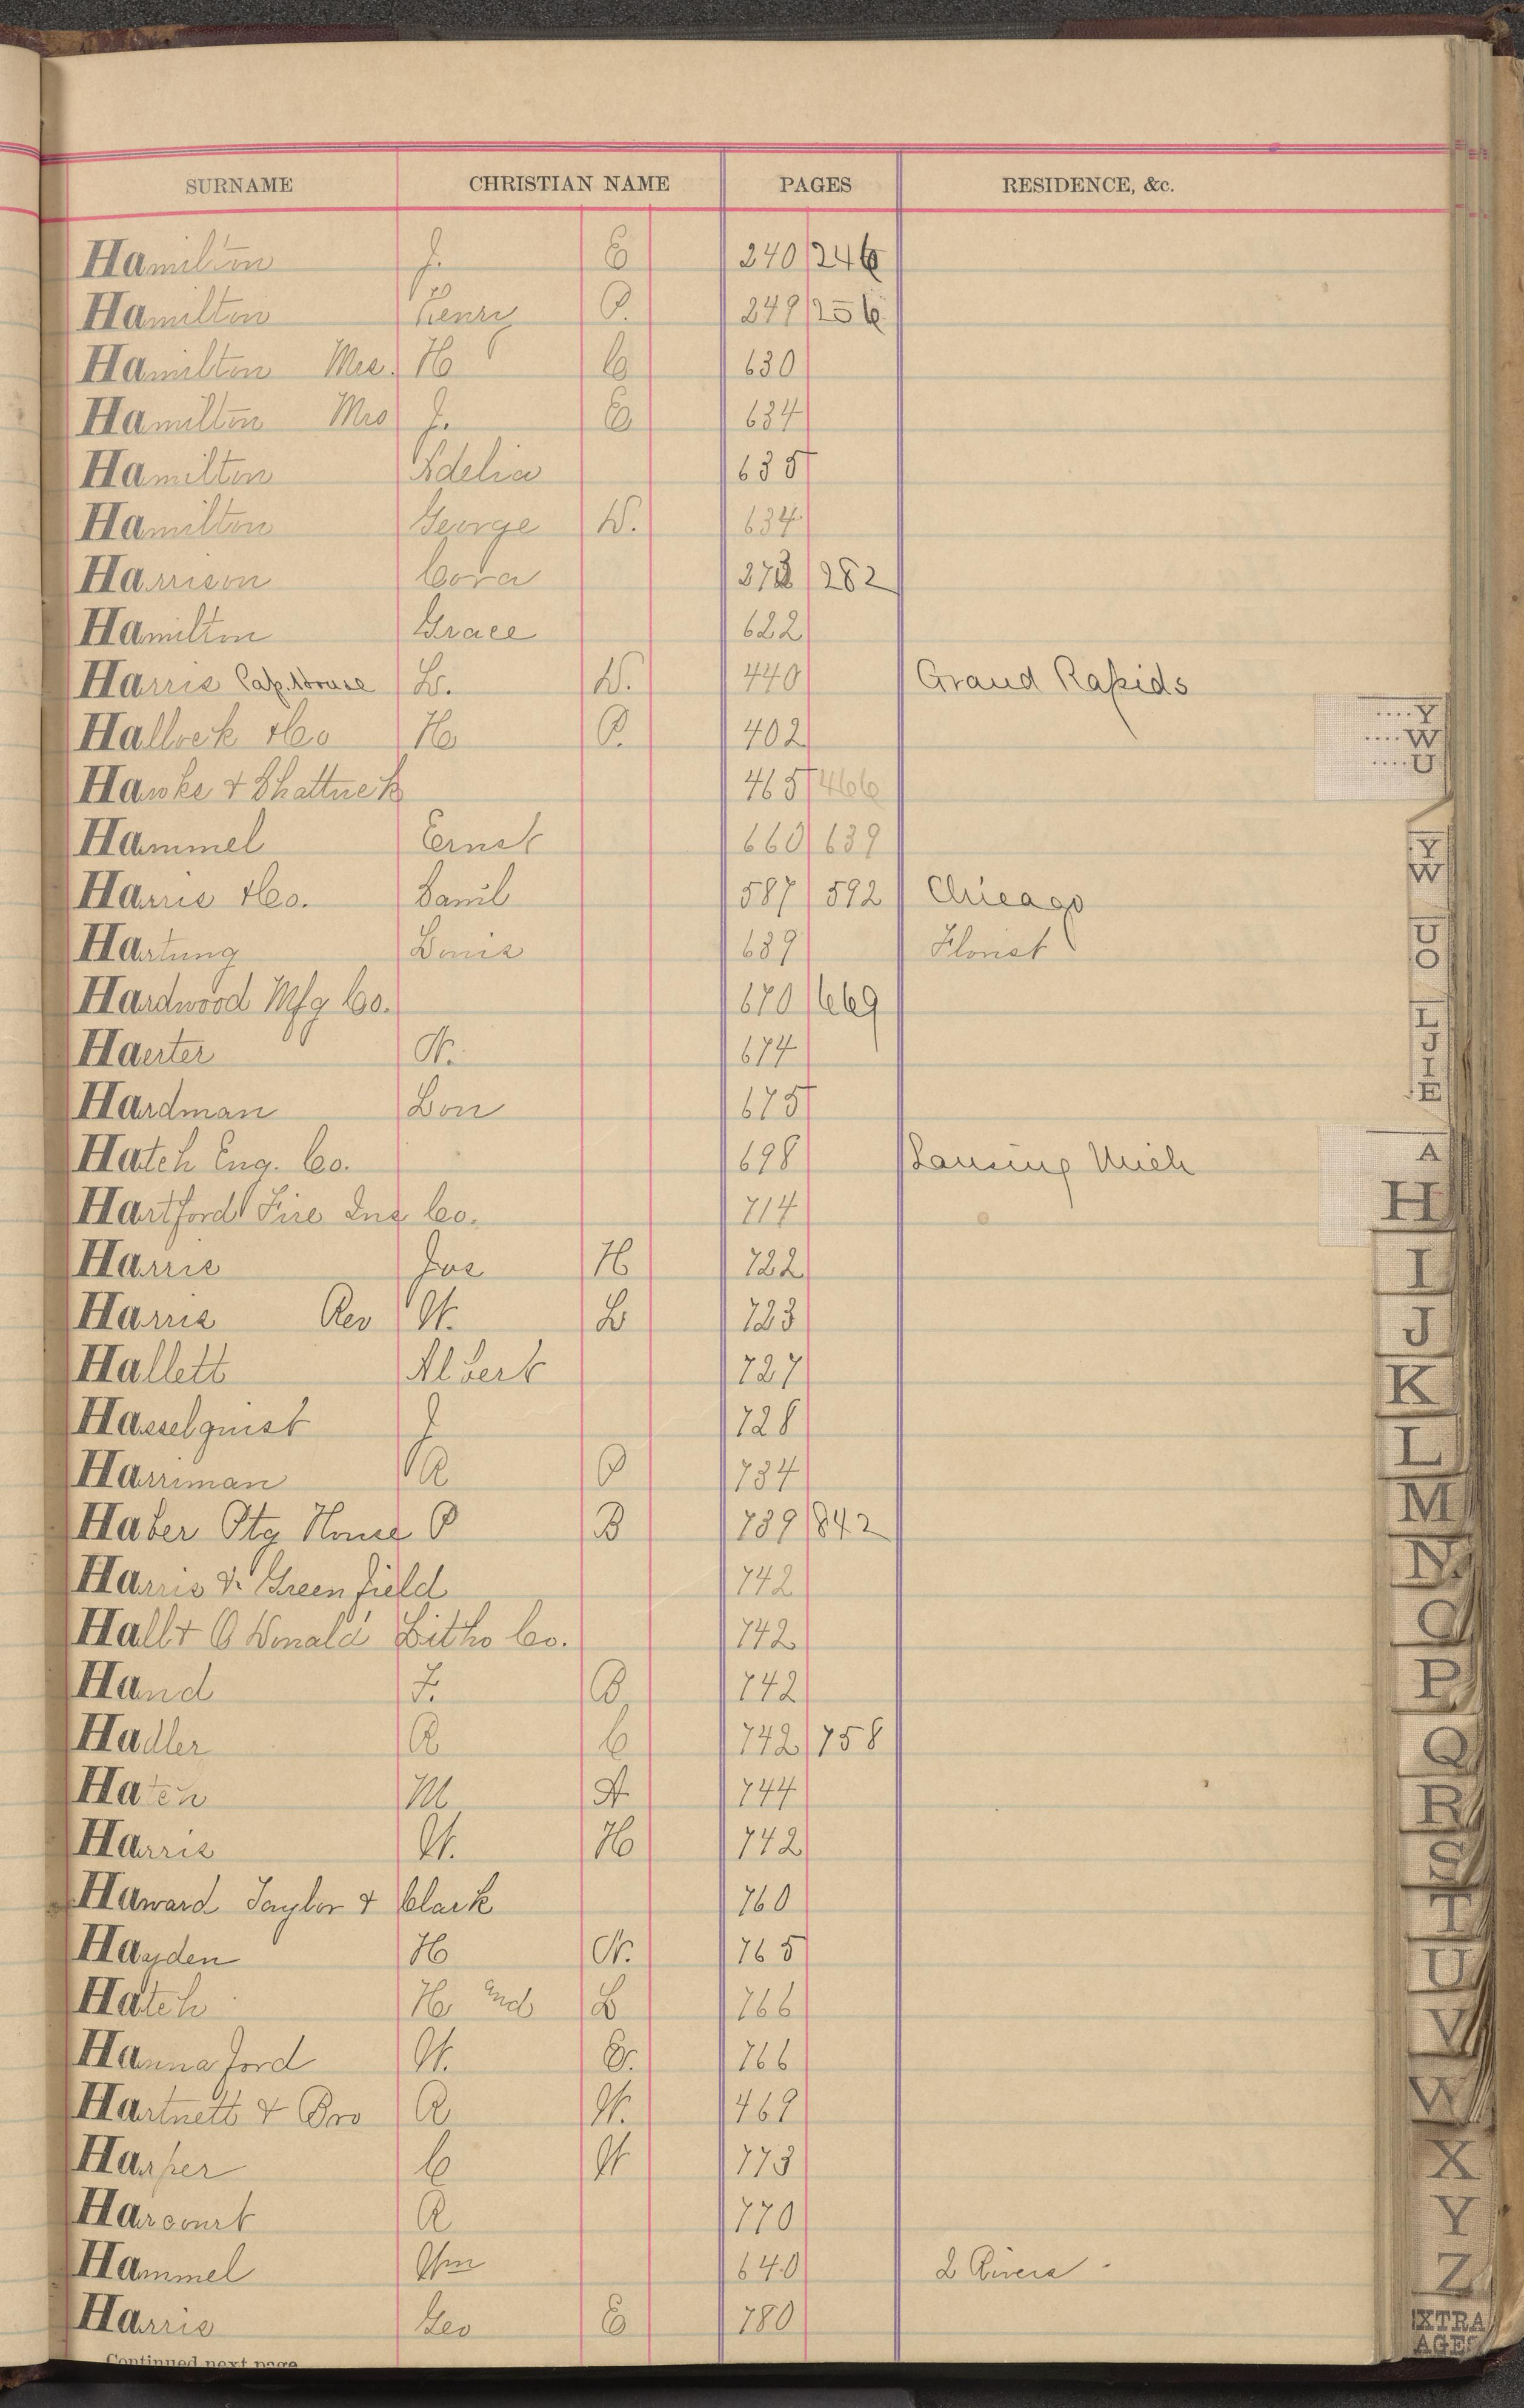 SURNAME CHRISTIAN NAME PAGES RESIDENCE, &c.
Hamilton J. E 240 246
Hamilton Henry P. 249 256
Hamilton Mrs. H C 630
Hamilton Mrs J. E 634
Hamilton Adelia 635
Hamilton George W. 634
Harrison Cora 282
Hamilton Grace 622
Harris Cap. House L. W. 440 Grand Rapids
Hallock &Co H P. 402
Hawks & Shattuck 465 466
Hammel Ernst 660 639
Harris &Co. Samil 587 592 Chicago
Hartung Louis 639 Florist
Hardwood Mfg Co. 670 669
Haerter W. 674
Hardman Lon 675
Hatch Eng. Co. 698 Lansing Mich
Hartford Fire Ins Co. 714
Harris Jos H 722
Harris Rev W. L 723
Hallett Albert 727
Hasselquist J 728
Harriman R P 734
Haber Ptg House P B 739 842
Harris & Greenfield 742
Hall & O Donald Litho Co. 742
Hand F. B. 742
Hadler R C 742 758
Hatch M A 744
Harris W. H 742
Haward Taylor & Clark 760
Hayden H W. 765
Hatch H L 766
Hannaford W. E. 766
Hartnett & Bro R W. 469
Harper C W 773
Harcourt R 770
Hammel Wm 640 2 Rivers
Harris Geo E 780
Continued next page
Y
W
U
Y
W
U
O
L
J
I
E
A
H
I
J
K
L
M
N
O
P
Q
R
S
T
U
V
W
X
Y
Z